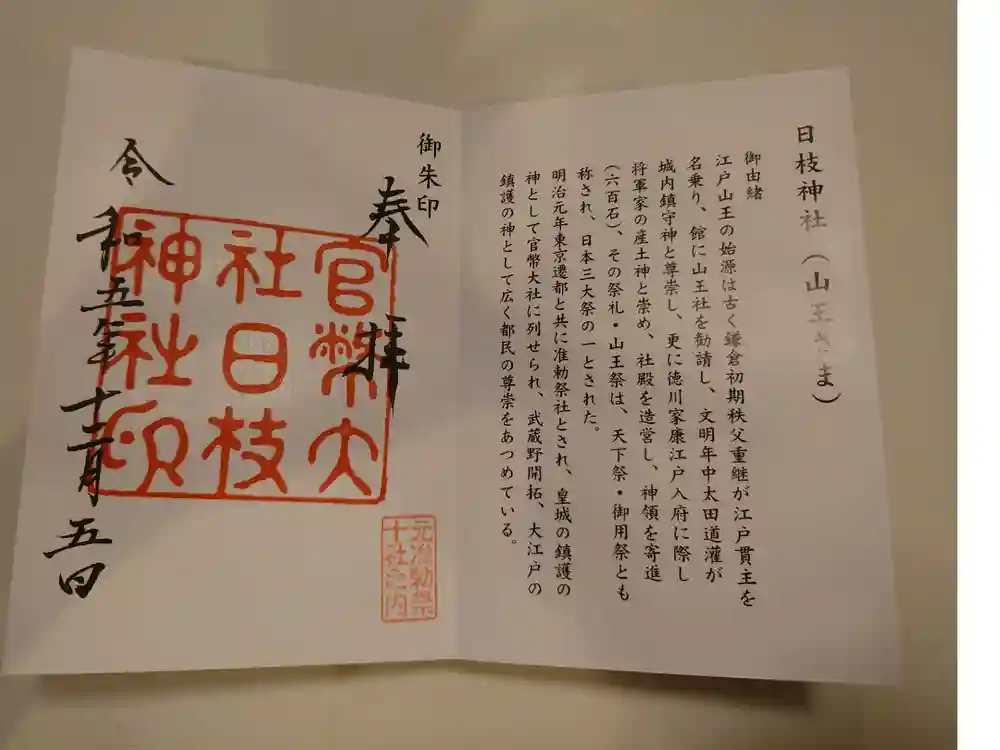 日枝神社（山王さま）
御由緒
江戸山王の始源は古く鎌倉初期秩父重継が江戸貫主を
名乗り、館に山王社を勧請し、文明年中太田道灌が
城内鎮守神と尊崇し、更に徳川家康江戸入府に際し
将軍家の産土神と崇め、社殿を造営し、神領を寄進
（六百石）、その祭礼・山王祭は、天下祭・御用祭とも
称され、日本三大祭の一とされた。
明治元年東京遷都と共に准勅祭社とされ、皇城の鎮護の
神として官幣大社に列せられ、武蔵野開拓、大江戸の
鎮護の神として広く都民の尊崇をあつめている。
御朱印
奉拝
官幣大
社日枝
神社印
元准勅祭
十社之内
令和五年十二月五日